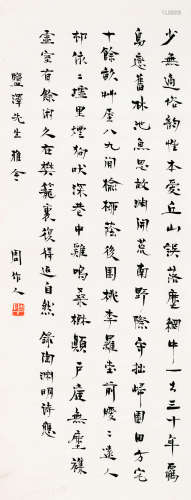 少無適俗韵性本愛丘山誤落塵網中一去三十年羈
鳥戀舊林池魚思故淵開荒南野際守拙歸園田方宅
十餘畝艸屋八九間榆柳蔭後園桃李羅堂前曖曖遠人
邨依依墟里煙狗吠深巷中雞鳴桑樹顛戶庭無塵襍
虛室有餘閒久在樊籠裏復得返自然 錄陶淵明詩應
鹽澤先生雅令 周作人